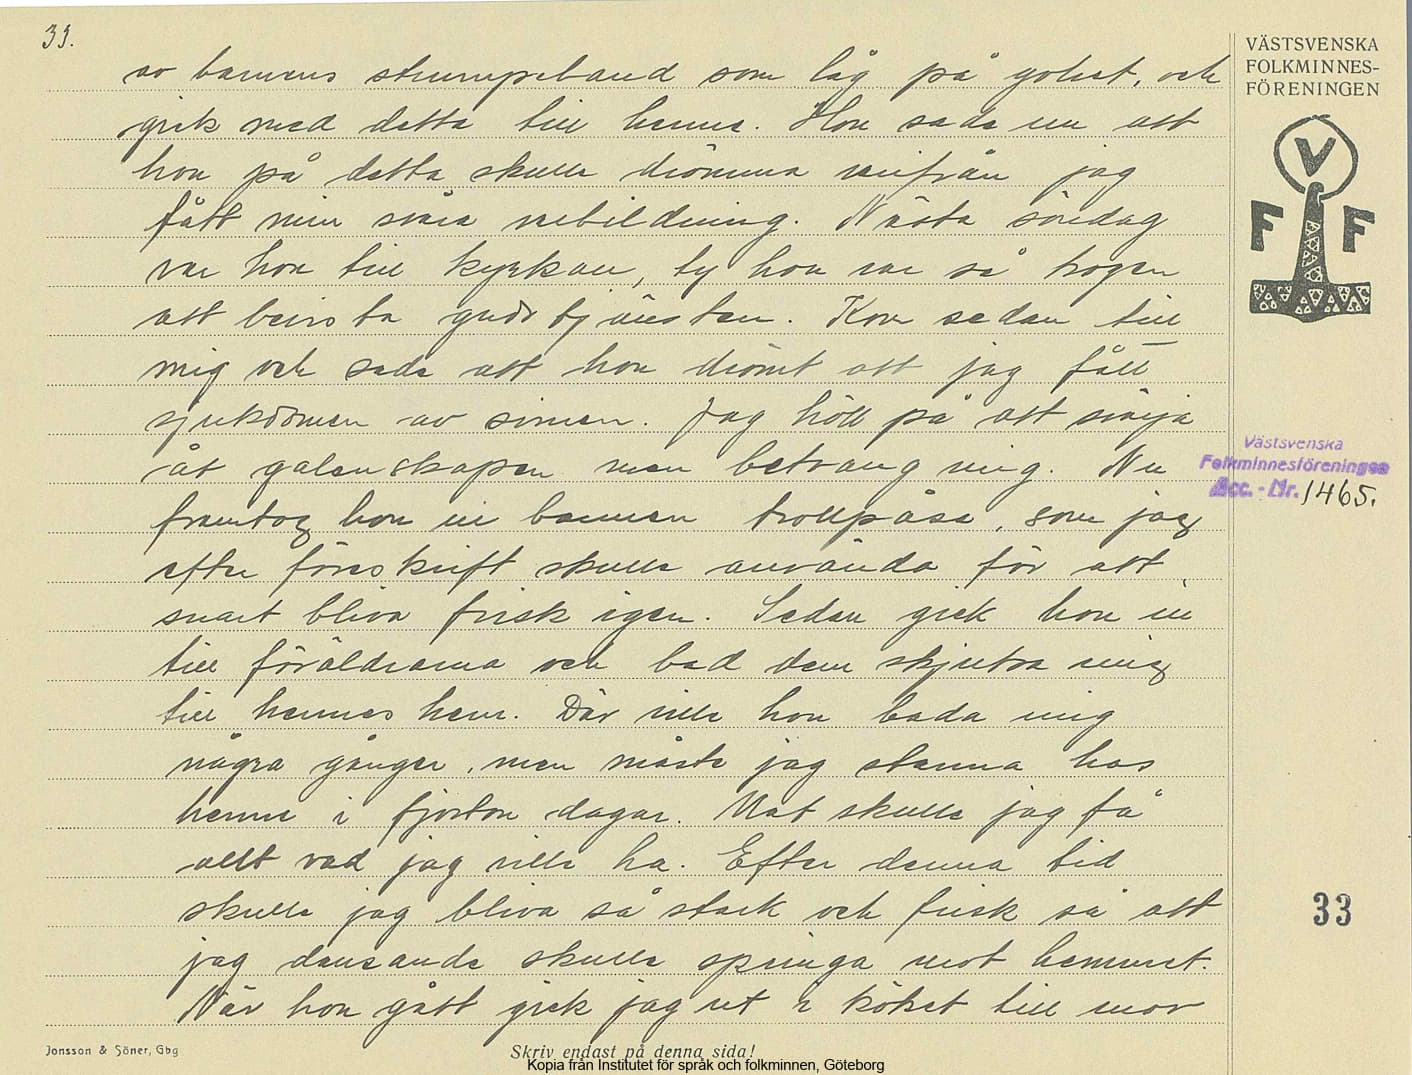 33.
av barnens strumpeband som låg på golvet, och
gick med detta till henne. Hon sade nu att
hon på detta skulle drömma varifrån jag
fått min svåra utbildning. Nästa söndag
var hon till kyrkan, ty hon var så trogen
att bevista gudstjänsten. Kom sedan till
mig och sade att hon drömt att jag fått
sjukdomen av simen. Jag höll på att svärja
åt galenskapen men betvang mig. Nu
framtog hon en trollpåse, som jag
efter föreskrift skulle använda för att
snart bliva frisk igen. Sedan gick hon in
till föräldrarna och bad dem skjutsa mig
till hennes hem. Där ville hon bada mig
några gånger, men måste jag stanna hos
henne i fjorton dagar. Mat skulle jag få
allt vad jag ville ha. Efter denna tid
skulle jag bliva så stark och frisk så att
jag dansande skulle springa mot hemmet.
När hon gått gick jag ut i köket till mor
VÄSTSVENSKA
FOLKMINNES-
FÖRENINGEN
V
F F
Västsvenska
Folkminnesföreningen
Acc.-Nr. 1465.
33
Jonsson & Söner, Gbg
Skriv endast på denna sida!
Kopia från Institutet för språk och folkminnen, Göteborg